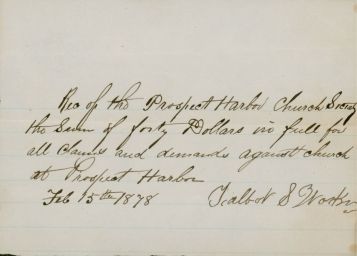 Rec of the Prospect Harbor Church Society
the Sum of forty Dollars in full for
all claims and demands against church
at Prospect Harbor
Feb 15th 1878 Talbot S